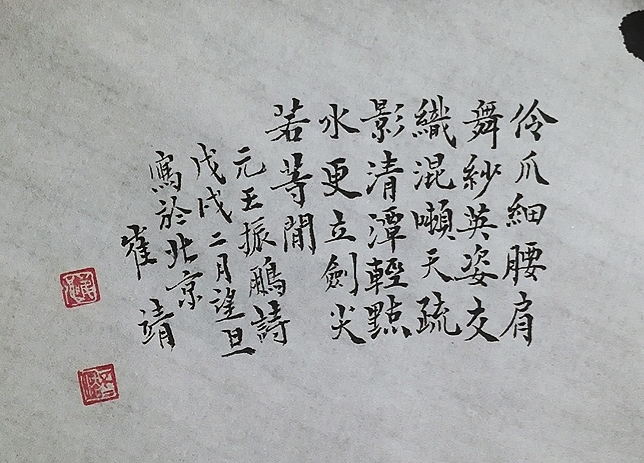 伶爪細腰肩
舞紗英姿交
織混噸天疏
影清潭輕點
水更立劍尖
若等閒
元王振鵬詩
戊戌二月望旦
寫於北京
崔靖